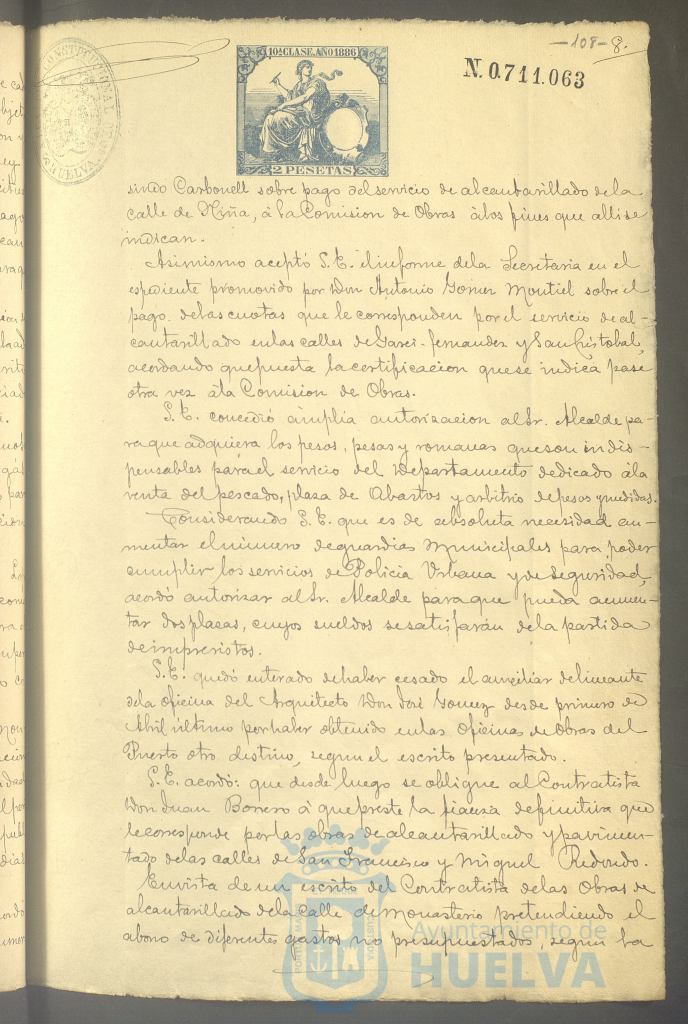 -108- 8.
10ª CLASE. AÑO 1886
N. 0.711.063
2 PESETAS
CONSTITUCIONAL
HUELVA
sindo Carbonell sobre pago del servicio de alcantarillado de la
calle de Niña, á la Comision de Obras á los fines que alli se
indican.
Asimismo aceptó S.E. el informe de la Secretaria en el
espediente promovido por Don Antonio Gomez Montiel sobre el
pago de las cuotas que le corresponden por el servicio de al-
cantarillado en las calles de Garci-fernandez y San Cristobal,
acordando que puesta la certificacion que se indica pase
otra vez á la Comision de Obras.
S.E. concedió amplia autorizacion al Sr. Alcalde pa-
ra que adquiera los pesos, pesas y romanas que son indis-
pensables para el servicio del departamento dedicado á la
venta del pescado, plaza de Abastos y arbitrio de pesos y medidas.
Considerando S.E. que es de absoluta necesidad au-
mentar el número de guardias municipales para poder
cumplir los servicios de Policia Urbana y de seguridad,
acordó autorizar al Sr. Alcalde para que pueda aumen-
tar dos plazas, cuyos sueldos se satisfarán de la partida
de imprevistos.
S.E. quedó enterado de haber cesado el auxiliar delineante
de la oficina del Arquitecto Don José Gomez desde primero de
Abril último por haber obtenido en las Oficinas de Obras del
Puerto otro destino, segun el escrito presentado.
S.E. acordó: que desde luego se obligue al Contratista
Don Juan Borrero á que preste la fianza definitiva que
le corresponde por las obras de alcantarillado y pavimen-
tado de las calles de San Francisco y Miguel Redondo.
En vista de un escrito del Contratista de las Obras de
alcantarillado de la calle de Monasterio pretendiendo el
abono de diferentes gastos no presupuestados, segun la
Ayuntamiento de
HUELVA